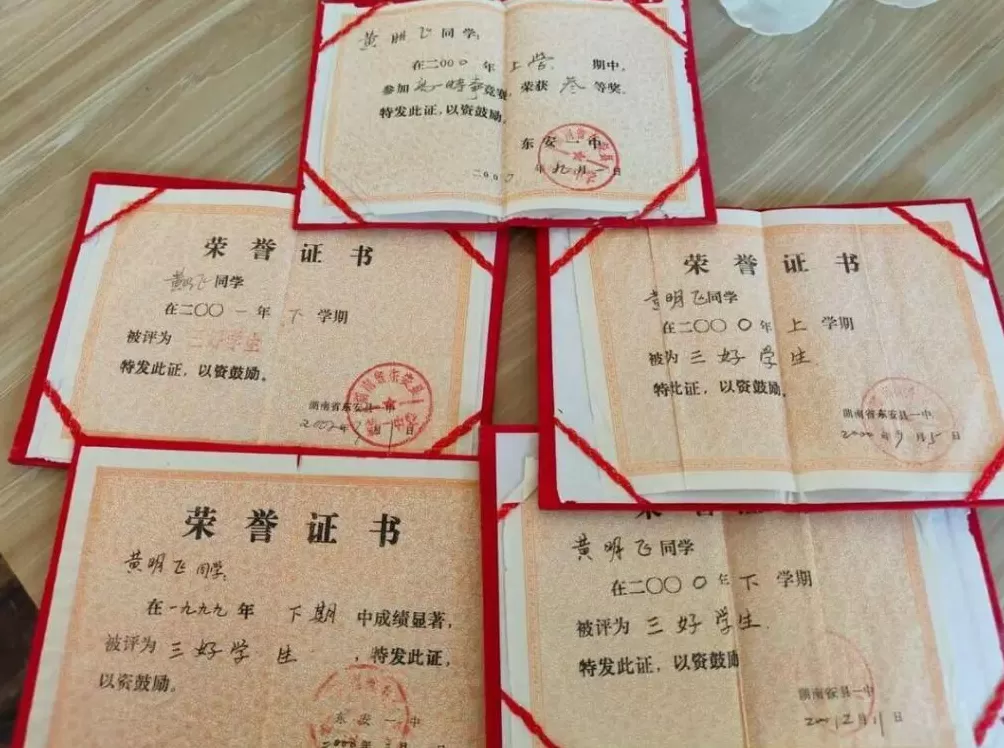 黄明飞同学:
在二000年上学期中,
参加 竞赛,荣获叁等奖。
特发此证,以资鼓励。
东安一中
荣誉证书
黄明飞同学
在二〇〇一年下学期
被评为三好学生
特发此证,以资鼓励。
湖南省东安县一中
荣誉证书
黄明飞同学
在二〇〇〇年上学期
被为三好学生
特此证,以资鼓励。
湖南省东安县一中
2000年9月5日
荣誉证书
黄明飞同学:
在一九九九年下期中成绩显著,
被评为三好学生,特发此证,
以资鼓励。
东安一中
黄明飞同学
在二〇〇〇年下学期
被评为三好学生.
特发此证,以资鼓励
湖南省安县一中